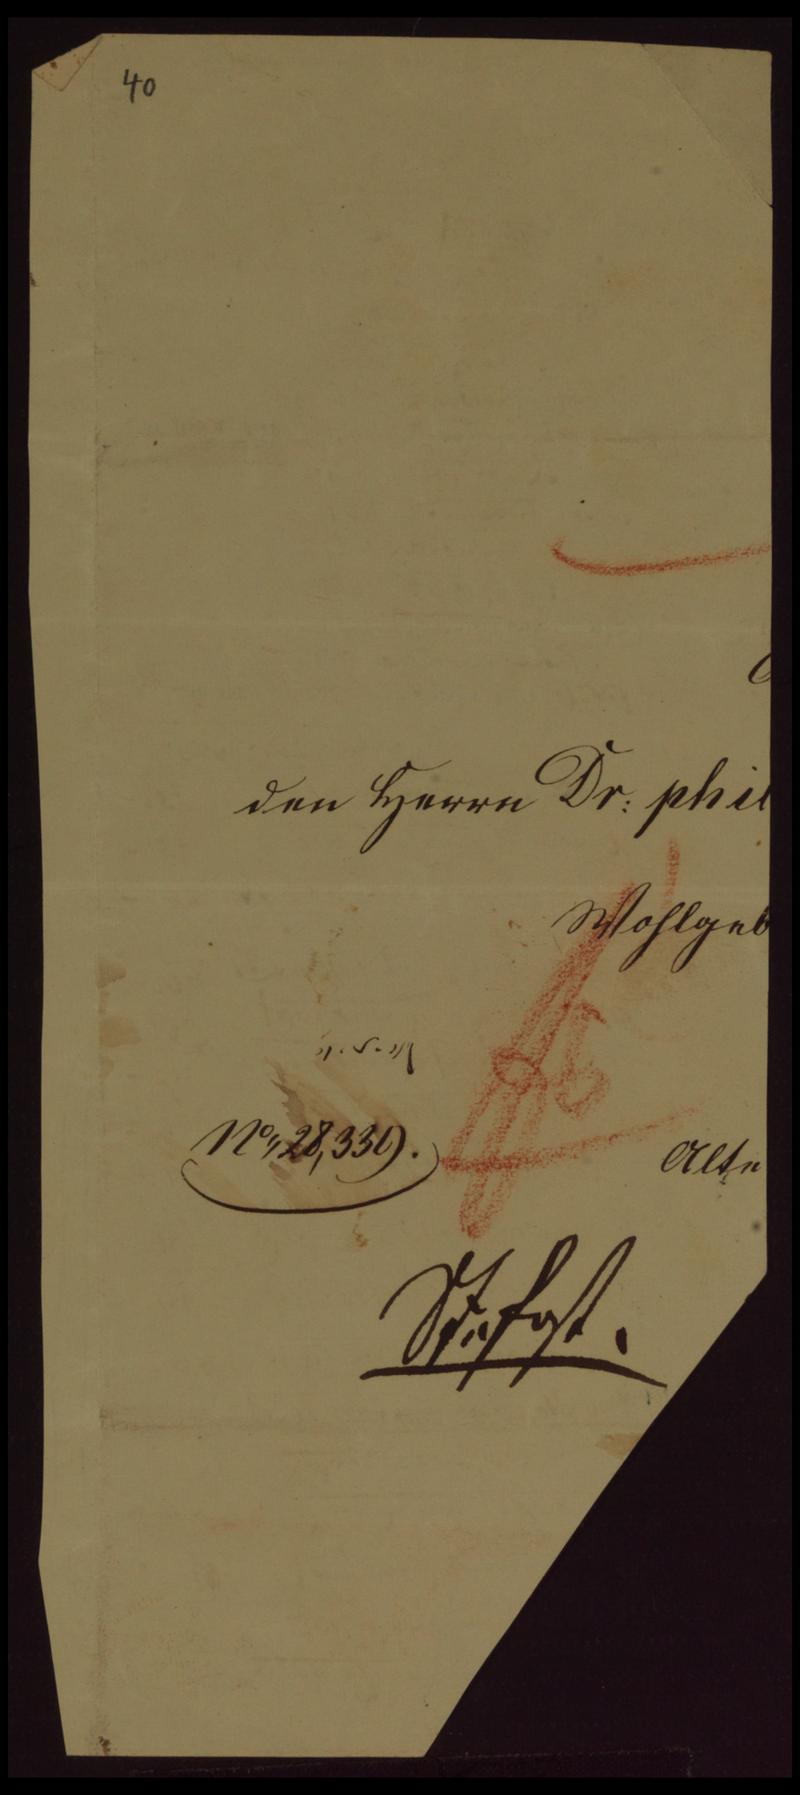 40
den Herrn Dr. phil
Wohlgeb
No, 28,339.
Alte